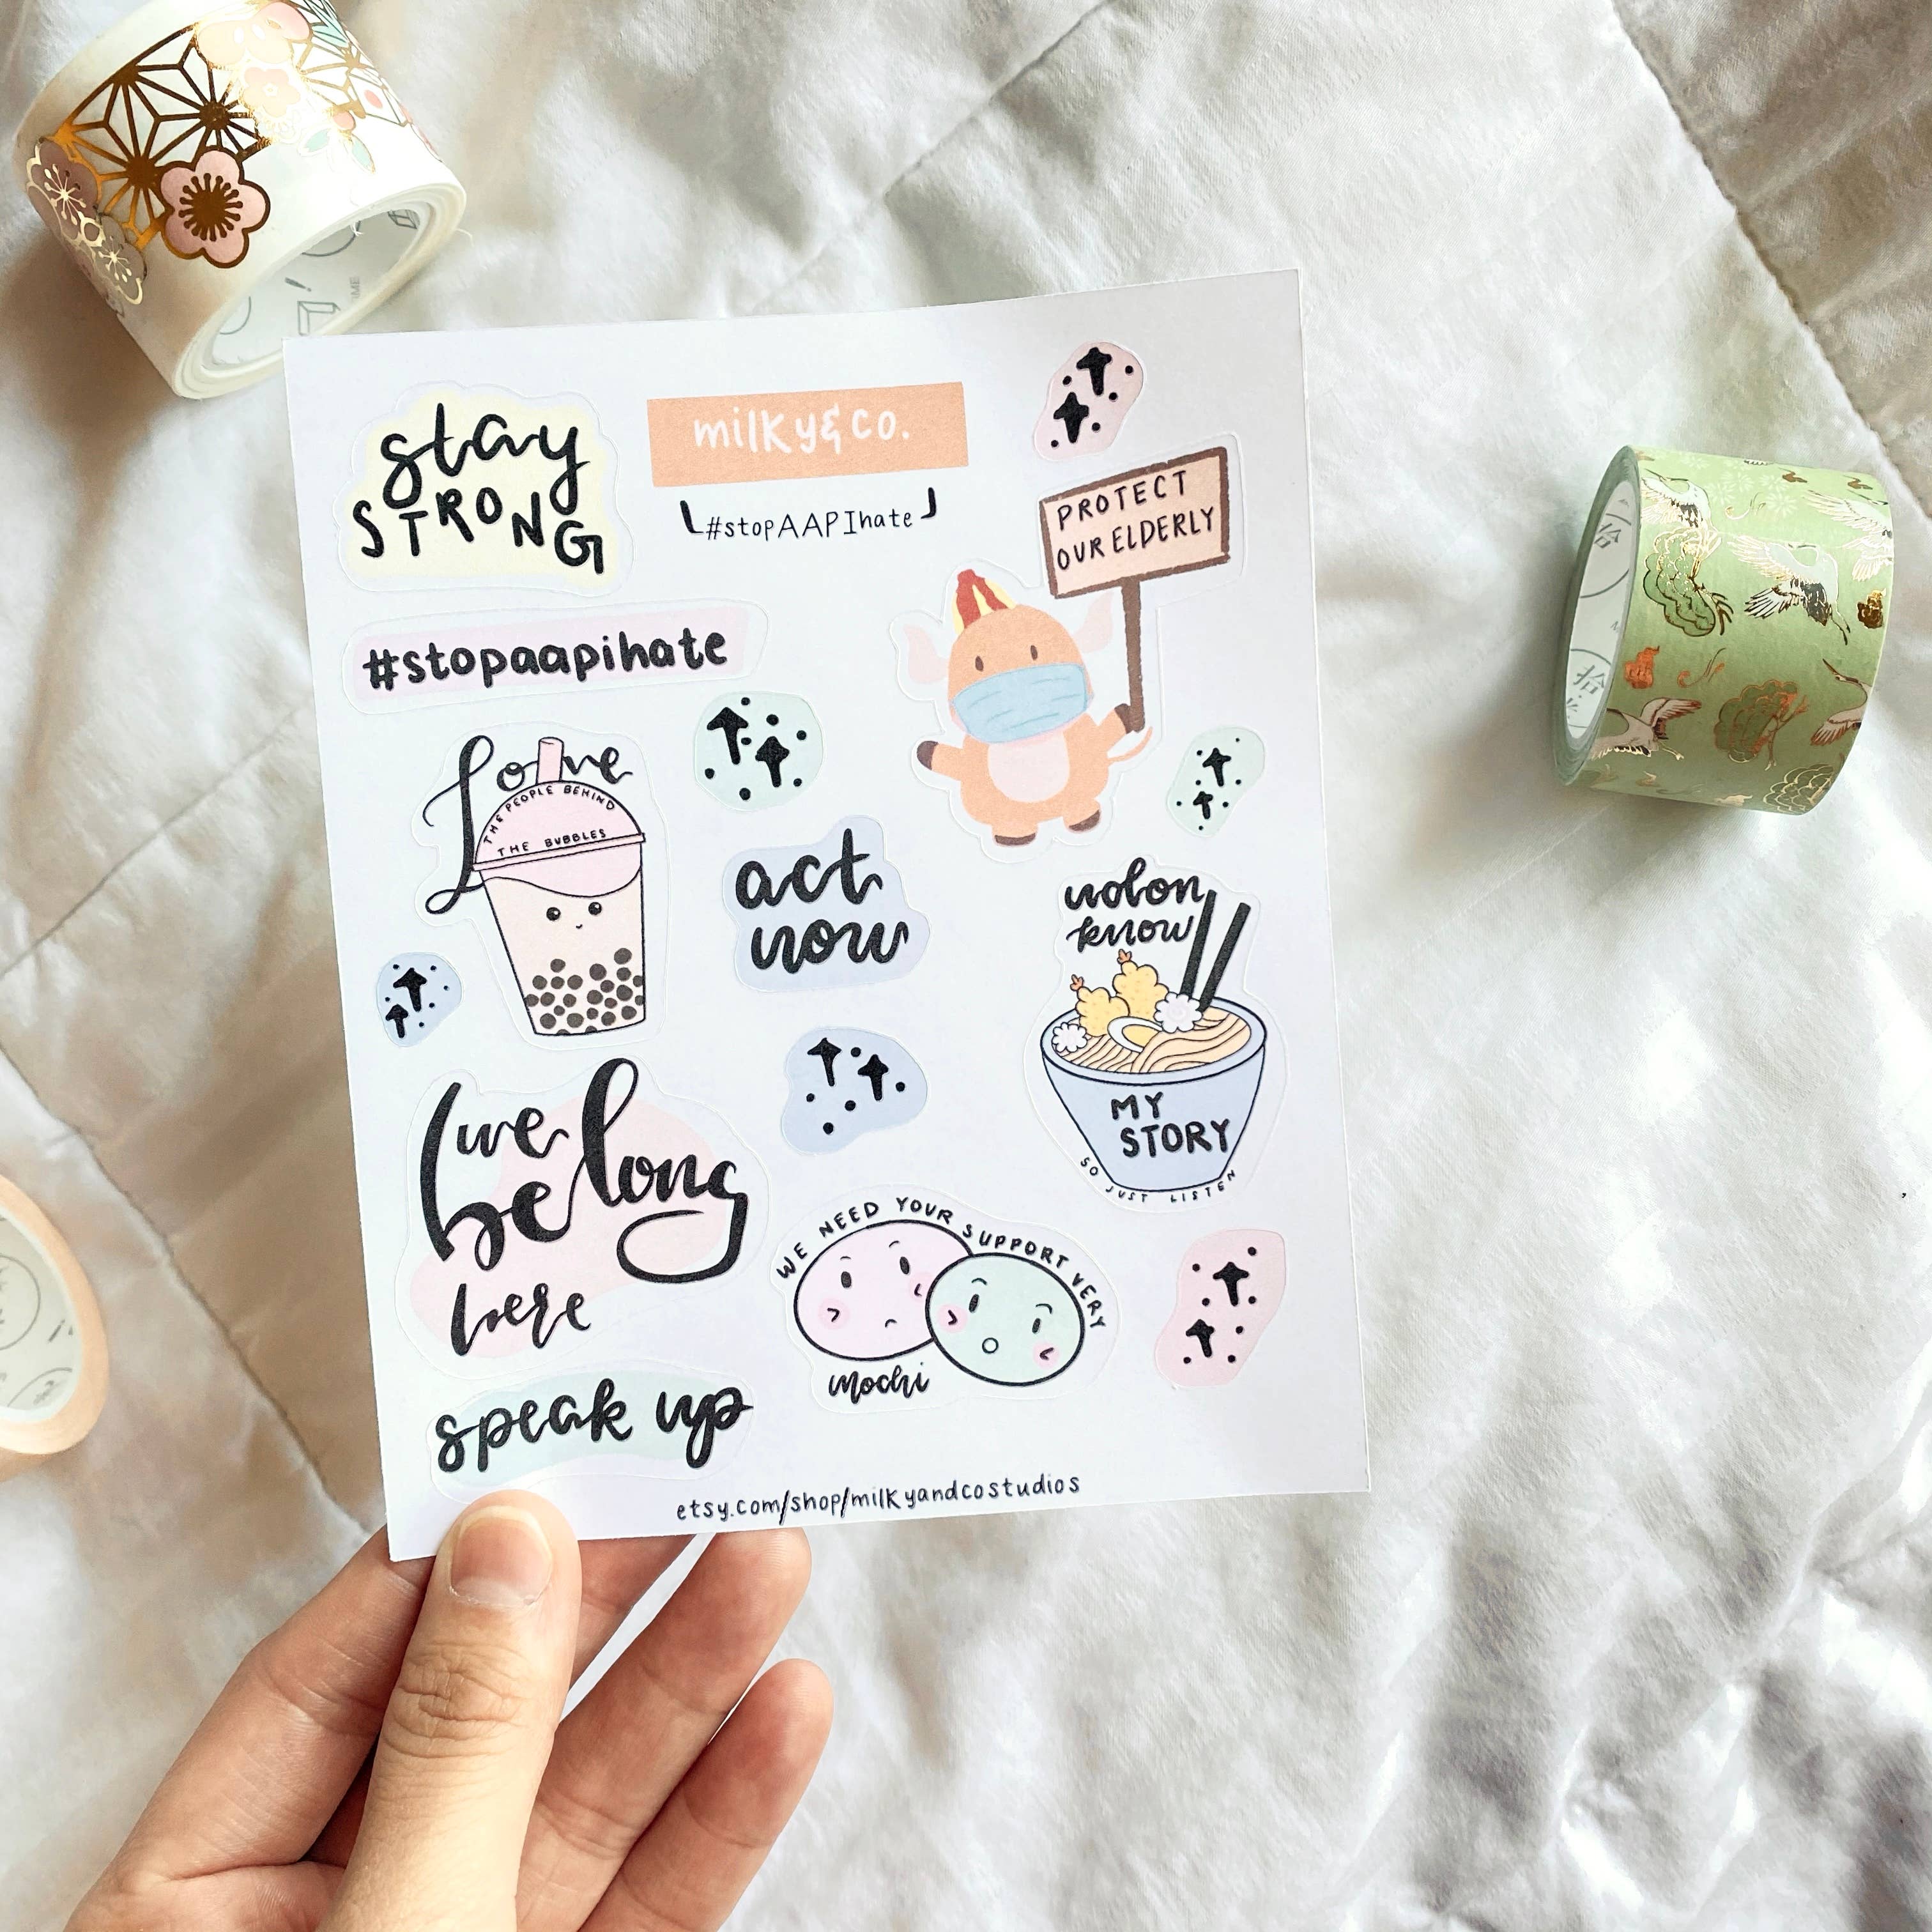 stay
STRONG
milky&co.
#stopAAPIhate
PROTECT
OUR ELDERLY
#stopaapihate
Love
THE PEOPLE BEHIND
THE BUBBLES
act
now
udon
know
MY
STORY
SO JUST LISTEN
we
belong
here
WE NEED YOUR SUPPORT VERY
mochi
speak up
etsy.com/shop/milkyandcostudios
拾